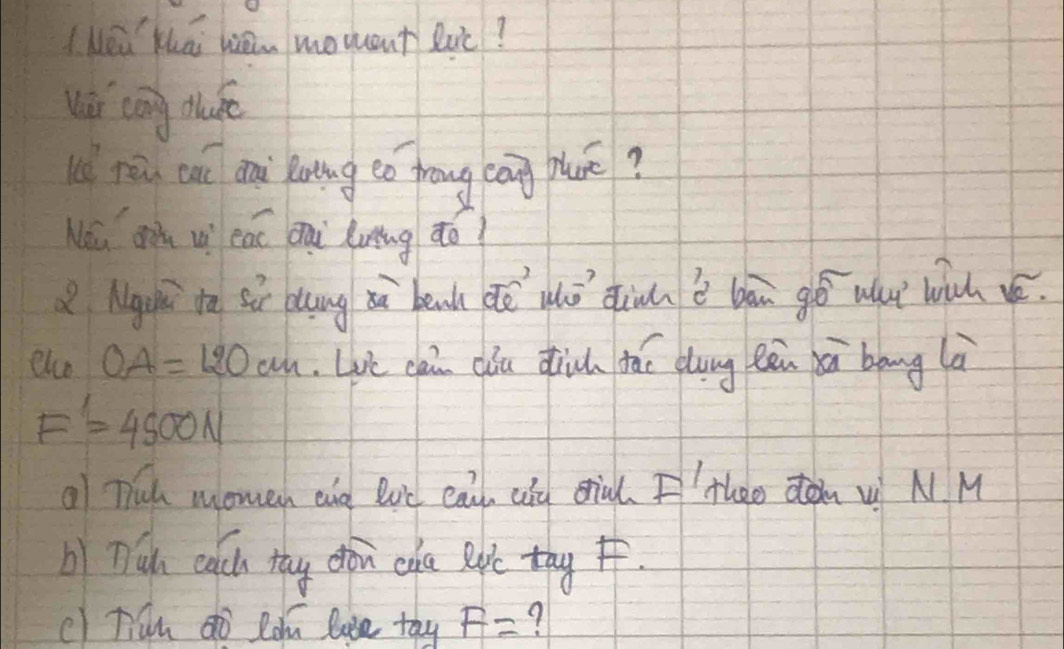 1. Nêu khái niệm moment lực?
Viết công thức
Kể tên các đại lượng có trong công thức?
Nêu đơn vị các đại lượng đó?
2. Người ta sử dụng xà beng để nhổ đinh ở bàn gỗ như hình vẽ.
Cho OA = 120 cm. Lực cản của đinh tác dụng lên xà bang là
F' = 4500N
a) Tính momen của lực cản của đinh F' theo đơn vị N.M
b) Tính cách tay đòn của lực tay F.
c) Tính độ lớn lực tay F = ?